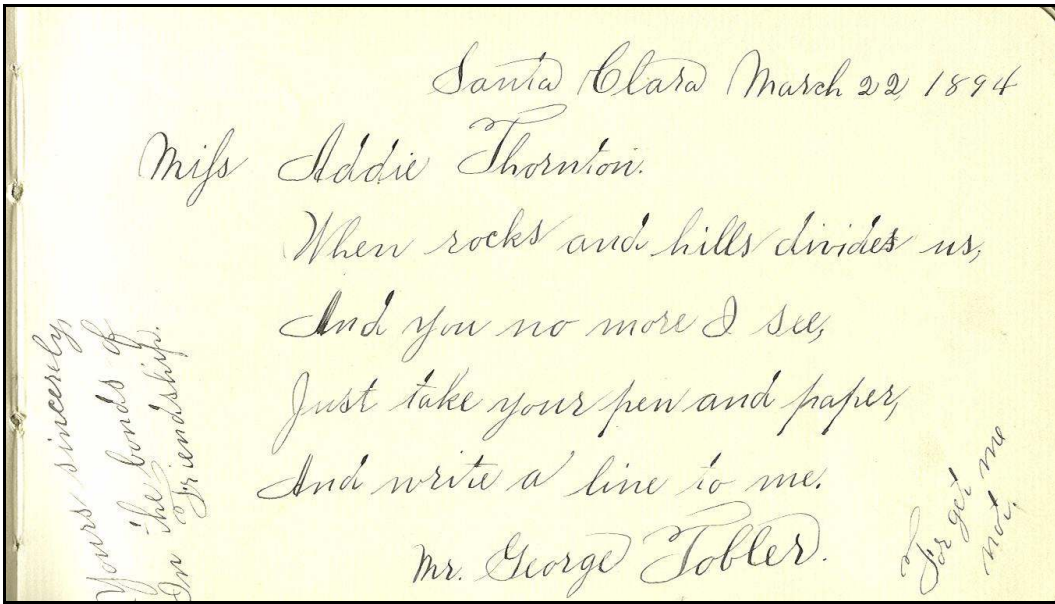 Santa Clara March 22, 1894
Miſs Addie Thornton.
When rocks and hills divides us,
And you no more I see,
Just take your pen and paper,
And write a line to me.
Mr. George Tobler.
Yours sincerely,
In the bonds of
Friendship.
Forget me
not.